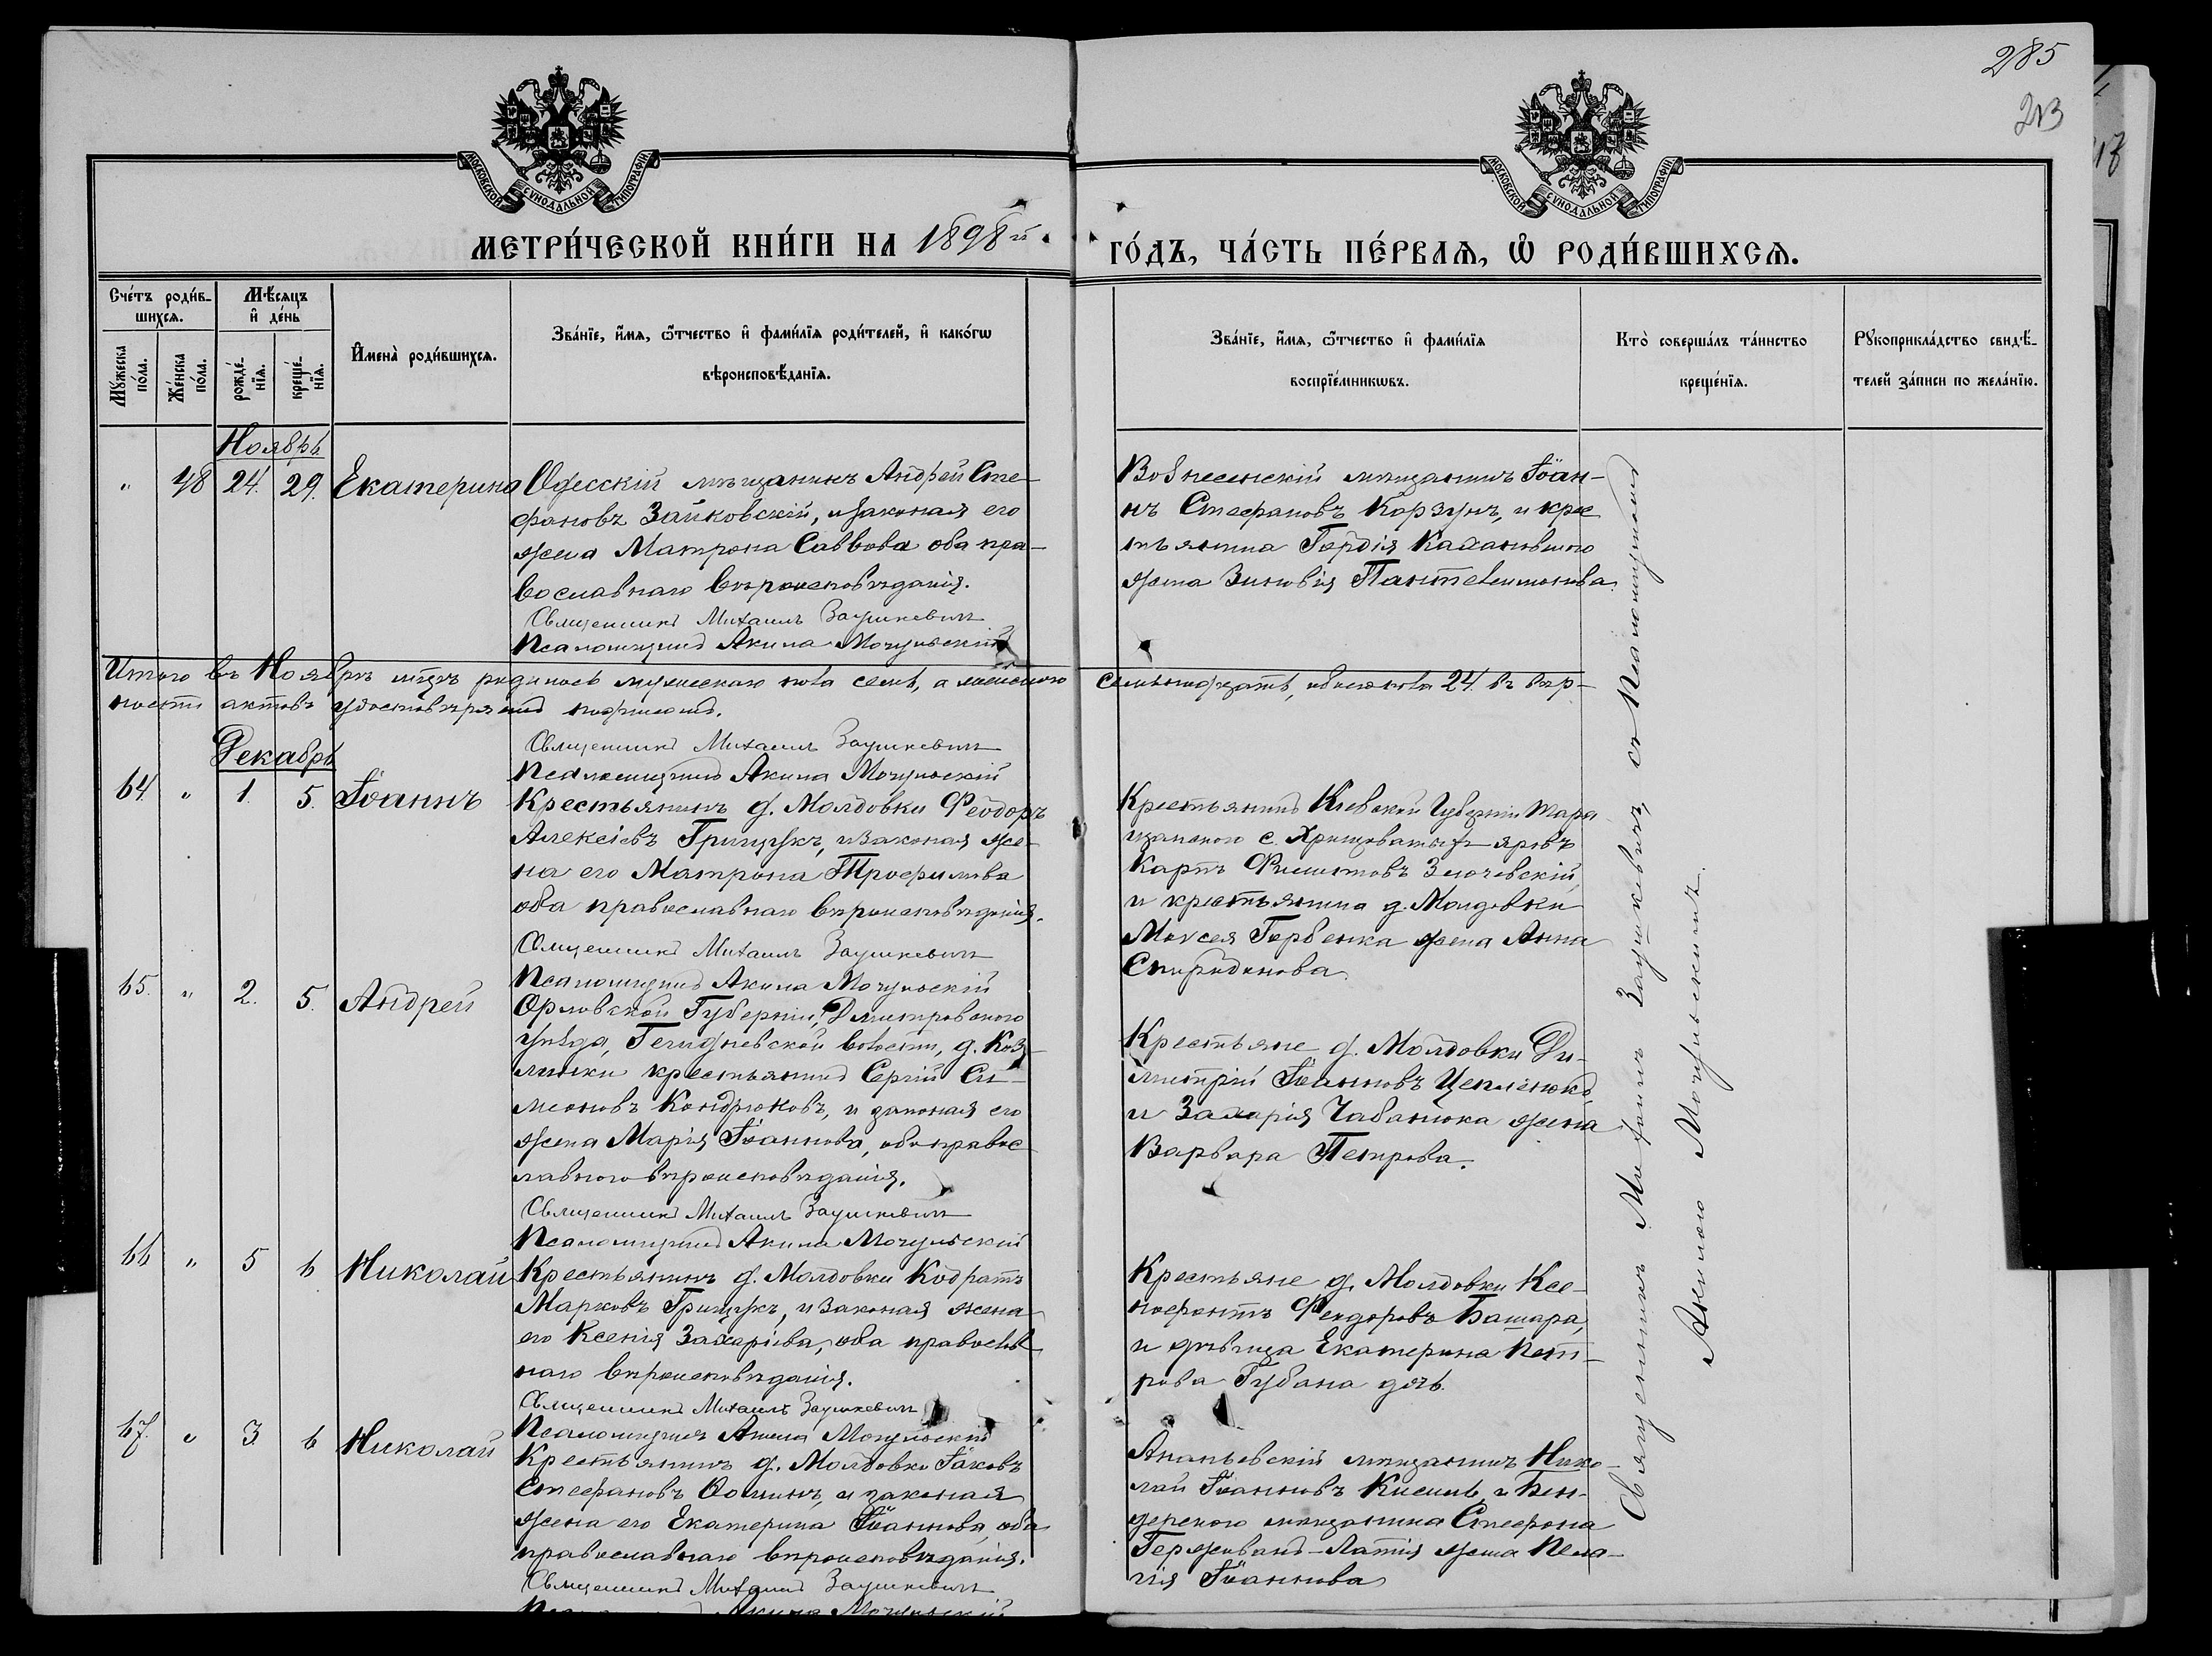 285
213
МОСКОВСКОЙ СѴНОДАЛЬНОЙ ТИПОГРАФІИ
МОСКОВСКОЙ СѴНОДАЛЬНОЙ ТИПОГРАФІИ
МЕТРИ́ЧЕСКОЙ КНИ́ГИ НА 1898й
ГО́ДЪ, ЧА́СТЬ ПЕ́РВАѦ, Ѡ РОДИ́ВШИХСѦ.
Сче́тъ роди́в-
шихсѧ.
Мѣ́сяцъ
и де́нь
Мꙋжеска
по́ла.
Же́нска
по́ла.
рожде́-
нїѧ.
креще́-
нїѧ.
Имена̀ роди́вшихсѧ.
Зва́нїе, и́мѧ, ѻ́тчество и фами́лїѧ роди́телей, и како́гѡ
вѣроисповѣ́данїѧ.
Зва́нїе, и́мѧ, ѻ́тчество и фами́лїѧ
воспрїе́мникѡвъ.
Кто̀ соверша́лъ та́инство
креще́нїѧ.
Рꙋкоприкла́дство свидѣ́-
телей за́писи по жела́нїю.
Ноябрь
" 48 24. 29. Екатерина
Одесскій мѣщанинъ Андрей Сте-
фановъ Зайковскій, и законная его
жена Матрона Саввова оба пра-
вославнаго вѣроисповѣданія.
Священникъ Михаилъ Заушкевичъ
Псаломщикъ Акила Могульскій
Вознесенскій мѣщанинъ Іоан-
нъ Стефановъ Корзунъ, и крес
тьянина Гордія
жена Зиновія Пантелеимонова.
Итого въ Ноябрѣ мѣсяцѣ родилось мужескаго пола семь, а женскаго семьнадцать, обоего пола 24. въ вѣр-
ности актовъ удостовѣряемъ подписомъ.
Священникъ Михаилъ Заушкевичъ
Псаломщикъ Акила Могульскій
Декабрь
64. " 1. 5. Іоаннъ
Крестьянинъ д. Молдовки Феодоръ
Алексіевъ Грищукъ, и законная же-
на его Матрона Трофимова
оба православнаго вѣроисповѣданія.
Священникъ Михаилъ Заушкевичъ
Псаломщикъ Акила Могульскій
Крестьянинъ Кіевской Губерніи Тара
щанскаго с. Хрищоватыхъ яровъ
Карпъ Филиповъ Злочевскій,
и крестьянина д. Молдовки
Моѵсея Горбенка жена Анна
Спиридонова.
65. " 2. 5. Андрей
Орловской Губерніи, Дмитровскаго
уѣзда, волости, д. Коз-
линки крестьянинъ Сергій Си-
меоновъ Кондрюковъ, и законная его
жена Марія Іоаннова, оба правос
лавнаго вѣроисповѣданія.
Священникъ Михаилъ Заушкевичъ
Псаломщикъ Акила Могульскій
Крестьяне д. Молдовки Ди-
митрій Іоанновъ Цепленюкъ
и Захарія Чабанюка жена
Варвара Петрова.
66 " 5 6 Николай
Крестьянинъ д. Молдовки Кодратъ
Марковъ Грищукъ, и законная жена
его Ксенія Захаріева, оба православ
наго вѣроисповѣданія.
Священникъ Михаилъ Заушкевичъ
Псаломщикъ Акила Могульскій
Крестьяне д. Молдовки Ксе-
нофонтъ Феодоровъ Башара,
и дѣвица Екатерина Пет-
рова Губана дочь.
67. " 3. 6 Николай
Крестьянинъ д. Молдовки Іаковъ
Стефановъ Ѳоминъ, и законная
жена его Екатерина Іоаннова, оба
православнаго вѣроисповѣданія.
Священникъ Михаилъ Заушкевичъ
Акила Могульскій
Ананьевскій мѣщанинъ Нико-
лай Іоанновъ Кисиль, и Бен-
дерскаго мѣщанина Стефана
жена Пела-
гія Іоаннова
Священникъ Михаилъ Заушкевичъ, съ Псаломщикомъ
Акилою Могульскимъ.